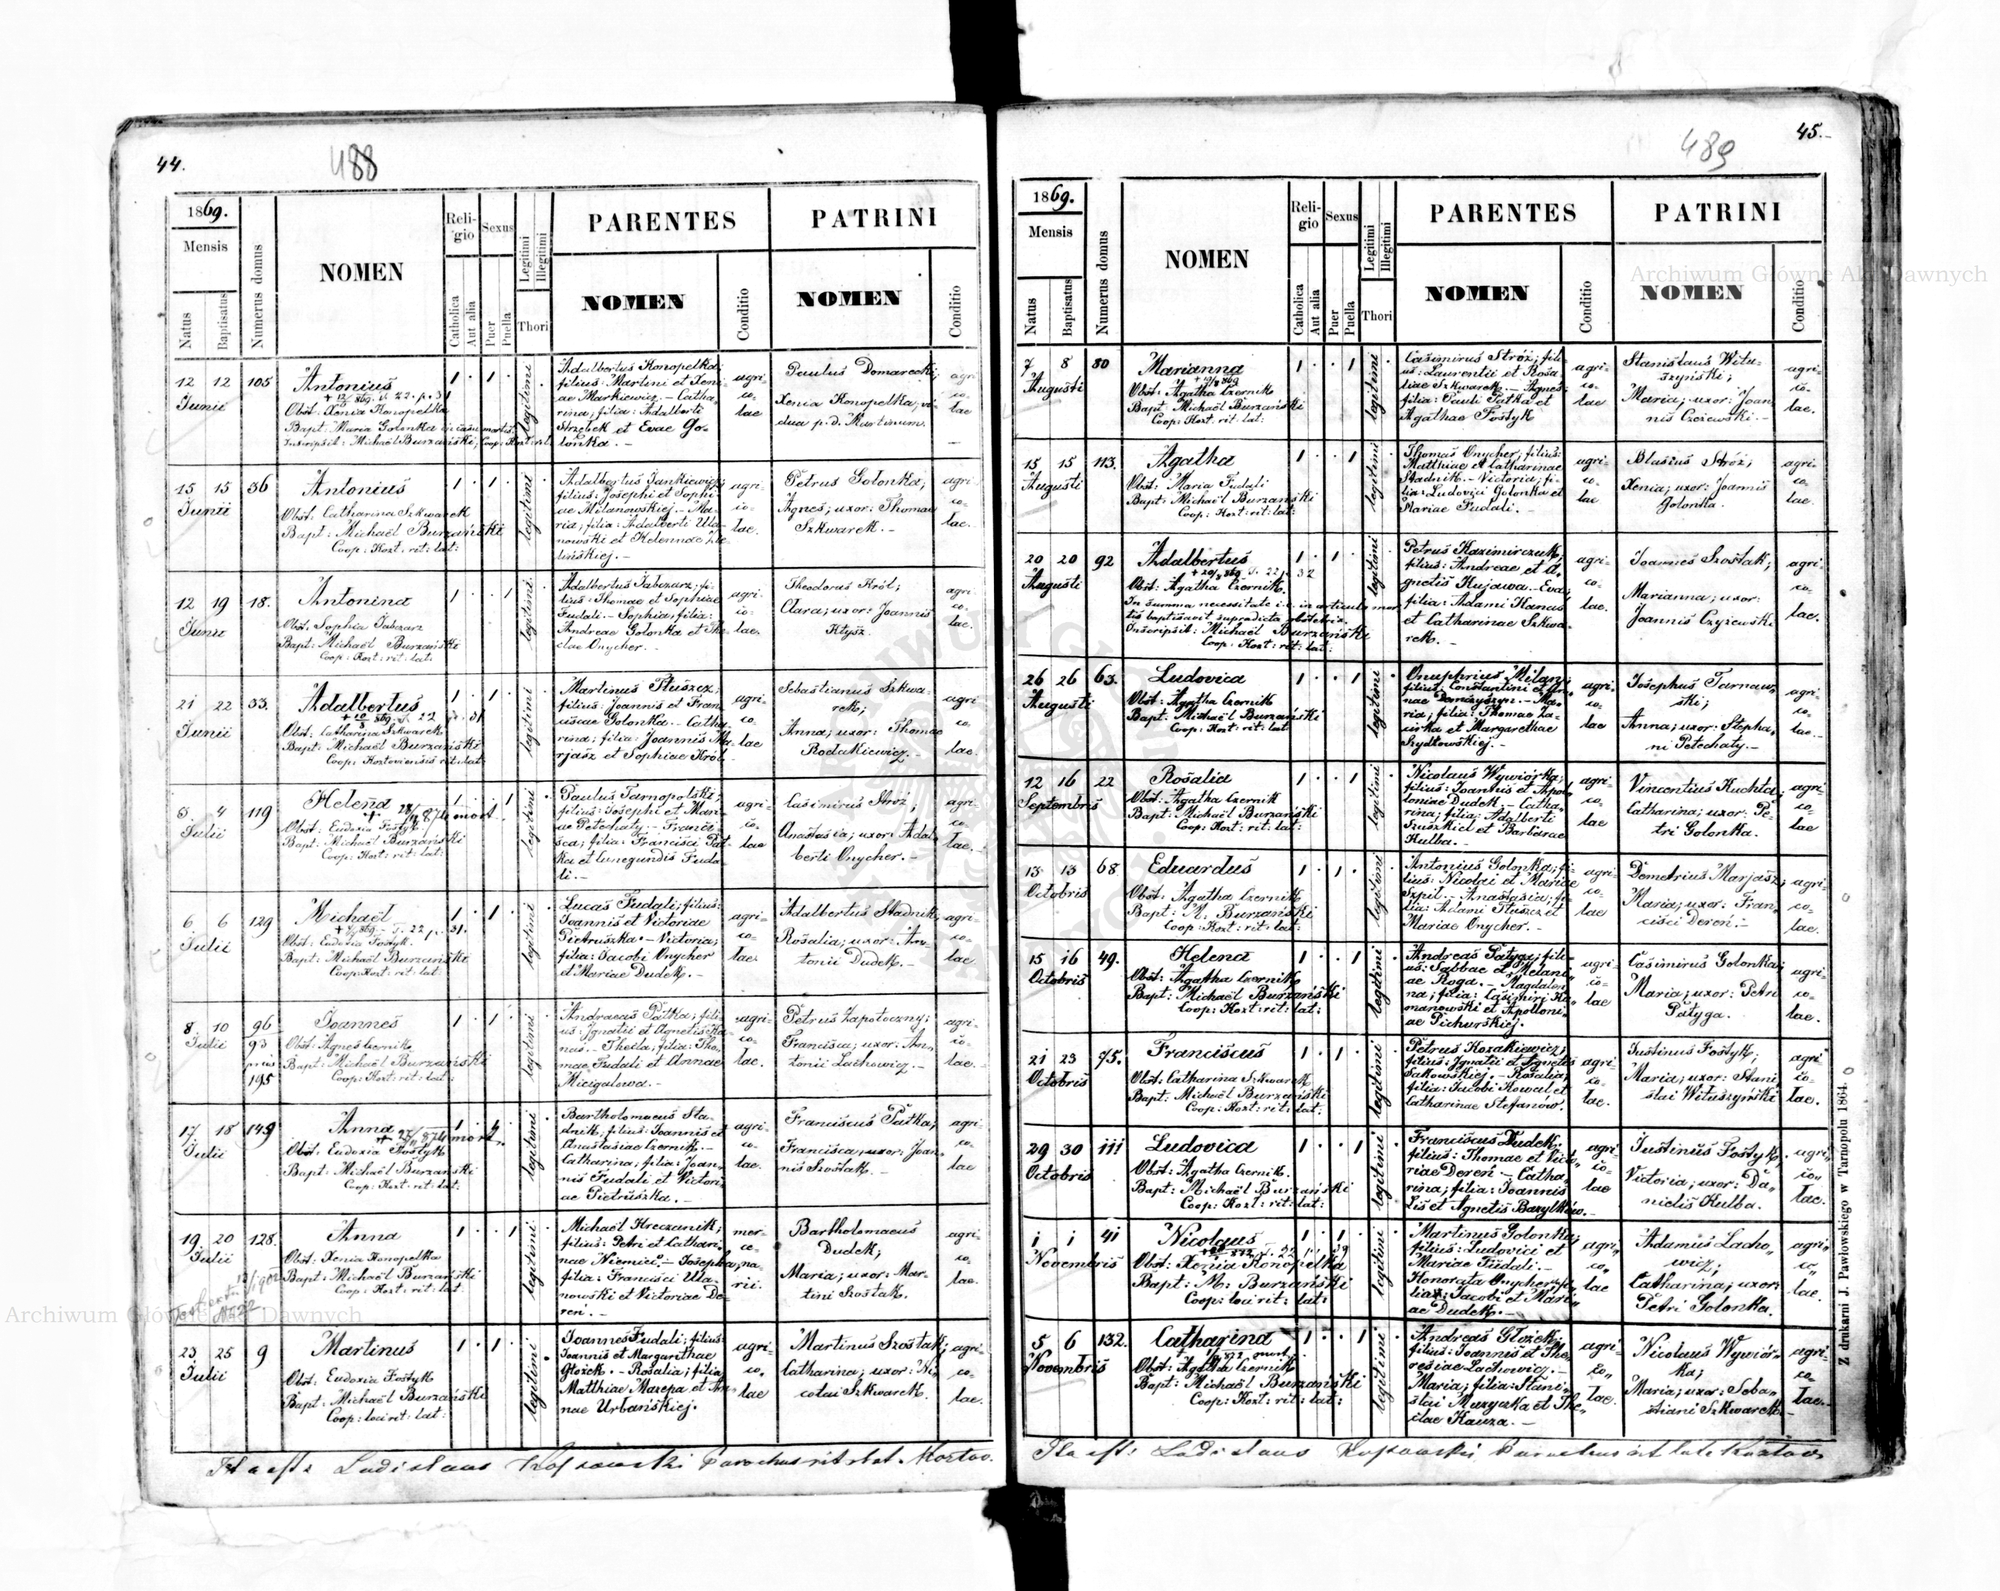 44.
488
1869.
Mensis
Natus
Baptisatus
Numerus domus
NOMEN
Religio
Catholica
Aut alia
Sexus
Puer
Puella
Legitimi
Illegitimi
Thori
PARENTES
NOMEN
Conditio
PATRINI
NOMEN
Conditio
12 12 105
Junii
Antonius
Obst. Xenia Konopelka
Bapt: Maria Golonka in casu mortis
Inscripsit: Michaël Burzański, Coop: Kozt: rit: lat:
1 · 1 ·
legitimi
Adalbertus Konopelka;
filius: Martini et Xeni-
ae Markiewicz. – Catha-
rina; filia: Adalberti
Strzelek et Evae Go-
lonka. –
agri-
co-
lae
Paulus Domarecki;
Xenia Konopelka; vi-
dua p. d. Martinum.
agri-
co-
lae
15 15 36
Junii
Antonius
Obst: Catharina Szkwarek
Bapt: Michaël Burzański
Coop: Kozt. rit: lat:
1 · 1 ·
legitimi
Adalbertus Jankiewicz;
filius: Josephi et Sophi-
ae Milanowskiej. – Ma-
ria; filia: Adalberti Ula-
nowski et Helennae
agri-
co-
lae.
Petrus Golonka;
Agnes; uxor: Thomae
Szkwarek. –
agri-
co-
lae.
12 19 18.
Junii
Antonina
Obst. Sophia Jabczarz
Bapt: Michaël Burzański
Coop: Kozt: rit: lat:
1 · · 1
legitimi
Adalbertus Jabczarz; fi-
lius: Thomae et Sophiae
Fudali. – Sophia; filia:
Andreae Golonka et The-
clae Onycher. –
agri-
co-
lae.
Theodorus Król;
Clara; uxor: Joannis
Kłysz.
agri-
co-
lae.
21 22 33.
Junii
Adalbertus
Obst: Catharina Szkwarek
Bapt: Michaël Burzański
Coop: Koztoviensis rit: lat:
1 · 1 ·
legitimi
Martinus Płuszcz;
filius: Joannis et Fran-
ciscae Golonka. – Catha-
rina; filia: Joannis Ma-
rjasz et Sophiae Król
agri-
co-
lae
Sebastianus Szkwa-
rek;
Anna; uxor: Thomae
Rodakiewicz. –
agri-
co-
lae.
3. 4 119
Julii
Helena
Obst: Eudoxia Fostyk
Bapt: Michaël Burzański
Coop: Kozt: rit: lat:
1 · · 1
legitimi
Paulus Tarnopolski;
filius: Josephi et Mari-
ae Petechaty. – Franci-
sca; filia: Francisci Pat-
ka et Cunegundis Fuda-
li. –
agri-
co-
lae
Casimirus Stróż;
Anastasia; uxor: Adal-
berti Onycher. –
agri-
co-
lae.
6 6 129
Julii
Michaël
Obst: Eudoxia Fostyk.
Bapt: Michaël Burzański
Coop: Kozt: rit: lat:
1 · 1 ·
legitimi
Lucas Fudali; filius:
Joannis et Victoriae
Pietruszka. – Victoria;
filia: Jacobi Onycher
et Mariae Dudek. –
agri-
co-
lae.
Adalbertus Stadnik;
Rosalia; uxor: An-
tonii Dudek. –
agri-
co-
lae.
8. 10 96
Julii 93
prius
195
Joannes
Obst: Agnes Czernik
Bapt: Michaël Burzański
Coop: Kozt: rit: lat:
1 · 1 ·
legitimi
Andraeas Patka; fili-
us: Ignatii et Agnetis Ka-
nas. – Thecla; filia: Tho-
mae Fudali et Annae
Micigalowa. –
agri-
co-
lae.
Petrus Zapotoczny;
Francisca; uxor: An-
tonii Lachowicz. –
agri-
co-
lae.
17 18 149
Julii
Anna
Obst: Eudoxia Fostyk
Bapt: Michaël Burzański
Coop: Kozt: rit: lat:
legitimi
Bartholomaeus Sta-
dnik, filius: Joannis et
Anastasiae Czernik. –
Catharina; filia: Joan-
nis Fudali et Victori-
ae Pietruszka. –
agri-
co-
lae.
Franciscus Patka;
Francisca; uxor: Joan-
nis Szostak. –
agri-
co-
lae
19 20 128.
Julii
Anna
Obst: Xenia Konopelka
Bapt: Michaël Burzański
Coop: Kozt: rit: lat:
1 · · 1
legitimi
Michaël Hreczanik;
filius: Petri et Cathari-
nae Niemiec. – Josepha;
filia: Francisci Ula-
nowski et Victoriae De-
reń. –
mer-
ce-
na-
rii.
Bartholomaeus
Dudek;
Maria; uxor: Mar-
tini Szostak.
agri-
co-
lae.
23 25 9
Julii
Martinus
Obst. Eudoxia Fostyk
Bapt: Michaël Burzański
Coop: loci rit: lat:
1 · 1 ·
legitimi
Joannes Fudali; filius:
Joannis et Margarithae
Głozek. – Rosalia; filia
Matthiae Mazepa et An-
nae Urbańskiej.
agri-
co-
lae
Martinus Szostak;
Catharina; uxor: Ni-
colai Szkwarek.
agri-
co-
lae.
Ita est: Ladislaus Parochus rit. lat. Koztov.
45.
489
1869.
Mensis
Natus
Baptisatus
Numerus domus
NOMEN
Religio
Catholica
Aut alia
Sexus
Puer
Puella
Legitimi
Illegitimi
Thori
PARENTES
NOMEN
Conditio
PATRINI
NOMEN
Conditio
7 8 80
Augusti
Marianna
Obst: Agatha Czernik
Bapt: Michaël Burzański
Coop: Kozt: rit: lat:
1 · · 1
legitimi
Casimirus Stróż; fili-
us: Laurentii et Rosa-
liae Szkwarek. – Agnes;
filia: Pauli Patka et
Agathae Fostyk
agri-
co-
lae
Stanislaus Witu-
szyński;
Maria; uxor: Joan-
nis Czyżewski. –
agri-
co-
lae.
15 15 113.
Augusti
Agatha
Obst: Maria Fudali
Bapt: Michaël Burzański
Coop: Kozt: rit: lat:
1 · · 1
legitimi
Thomas Onycher; filius:
Matthiae et Catharinae
Stadnik. – Victoria; fi-
lia: Ludovici Golonka et
Mariae Fudali. –
agri-
co-
lae
Blasius Stróż;
Xenia; uxor: Joannis
Golonka.
agri-
co-
lae.
20 20 92
Augusti
Adalbertus
Obst: Agatha Czernik.
In summa necessitate i. e. in articulo mor-
tis baptisavit supradicta obstetrix.
Inscripsit: Michaël Burzański
Coop: Kozt: rit: lat:
1 · 1 ·
legitimi
Petrus Kazimirczuk;
filius: Andreae et A-
gnetis Kujawa. – Eva;
filia: Adami Kanas
et Catharinae Szkwa-
rek. –
agri-
co-
lae.
Joannes Szostak;
Marianna; uxor:
Joannis Czyżewski.
agri-
co-
lae.
26 26 63.
Augusti
Ludovica
Obst: Agatha Czernik
Bapt: Michaël Burzański
Coop: Kozt: rit: lat:
1 · · 1
legitimi
Onuphrius Milan;
filius: Constantini et An-
nae Domżyszyn. – Ma-
ria; filia: Thomae Za-
and Margarethae
Szydłowskiej. –
agri-
co-
lae
Josephus Tarnaw-
ski;
Anna; uxor: Stepha-
ni Petechaty. –
agri-
co-
lae. –
12 16 22
Septembris
Rosalia
Obst: Agatha Czernik
Bapt: Michaël Burzański
Coop: Kozt: rit: lat:
1 · · 1
legitimi
Nicolaus Wywiórka;
filius: Joannis et Apol-
loniae Dudek. – Catha-
rina; filia: Adalberti
Szuszkiel et Barbarae
Kulba. –
agri-
co-
lae
Vincentius Kuchta;
Catharina; uxor: Pe-
tri Golonka.
agri-
co-
lae
13 13 68
Octobris
Eduardus
Obst: Agatha Czernik
Bapt: M. Burzański
Coop: Kozt: rit: lat:
1 · 1 ·
legitimi
Antonius Golonka; fi-
lius: Nicolai et Mariae
Szpil. – Anastasia; fi-
lia: Adami Płuszcz et
Mariae Onycher. –
agri-
co-
lae
Demetrius Marjasz;
Maria; uxor: Fran-
cisci Dereń. –
agri-
co-
lae.
15 16 49.
Octobris
Helena
Obst: Agatha Czernik
Bapt: Michaël Burzański
Coop: Kozt: rit: lat:
1 · · 1
legitimi
Andreas Patyga; fili-
us: Sabbae et Melani-
ae Roga. – Magdale-
na; filia: Casimiri Ro-
manowski et Apolloni-
ae Pichurskiej.
agri-
co-
lae
Casimirus Golonka;
Maria; uxor: Petri
Patyga.
agri-
co-
lae.
21 23 75.
Octobris
Franciscus
Obst: Catharina Szkwarek
Bapt: Michaël Burzański
Coop: Kozt: rit: lat:
1 · 1 ·
legitimi
Petrus Kozakiewicz;
filius: Ignatii et Agnetis
Sakowskiej. – Rosalia;
filia: Jacobi Kowal et
Catharinae Stefanów.
agri-
co-
lae.
Justinus Fostyk;
Maria; uxor: Stani-
slai Wituszyński
agri-
co-
lae.
29 30 111
Octobris
Ludovica
Obst: Agatha Czernik.
Bapt: Michaël Burzański
Coop: Kozt: rit: lat:
1 · · 1
legitimi
Franciscus Dudek.
filius: Thomae et Victo-
riae Dereń – Catha-
rina; filia: Joannis
Lis et Agnetis Baryłków. –
agri-
co-
lae
Justinus Fostyk,
Victoria; uxor: Da-
nielis Kulba.
agri-
co-
lae.
1 1 41
Novembris
Nicolaus
Obst: Xenia Konopelka
Bapt: M: Burzański
Coop: loci rit: lat:
legitimi
Martinus Golonka;
filius: Ludovici et
Mariae Fudali. –
Honorata Onycher; fi-
lia: Jacobi et Mari-
ae Dudek. –
agri-
co-
lae
Adamus Lacho-
wicz;
Catharina; uxor:
Petri Golonka.
agri-
co-
lae.
5 6 132.
Novembris
Catharina
Obst: Agatha Czernik
Bapt: Michaël Burzański
Coop: Kozt: rit: lat:
1 · · 1
legitimi
Andreas Głozek;
filius: Joannis et The-
resiae Lachowicz. –
Maria; filia: Stani-
slai Muzyczka et The-
clae Kauza. –
agri-
co-
lae.
Nicolaus Wywiór-
ka;
Maria; uxor: Seba-
stiani Szkwarek. –
agri-
co-
lae. –
Ita est: Ladislaus Parochus rit. lat. Koztov
Z drukarni J. Pawłowskiego w Tarnopolu 1864.
Archiwum Główne Akt Dawnych
Archiwum Główne Akt Dawnych